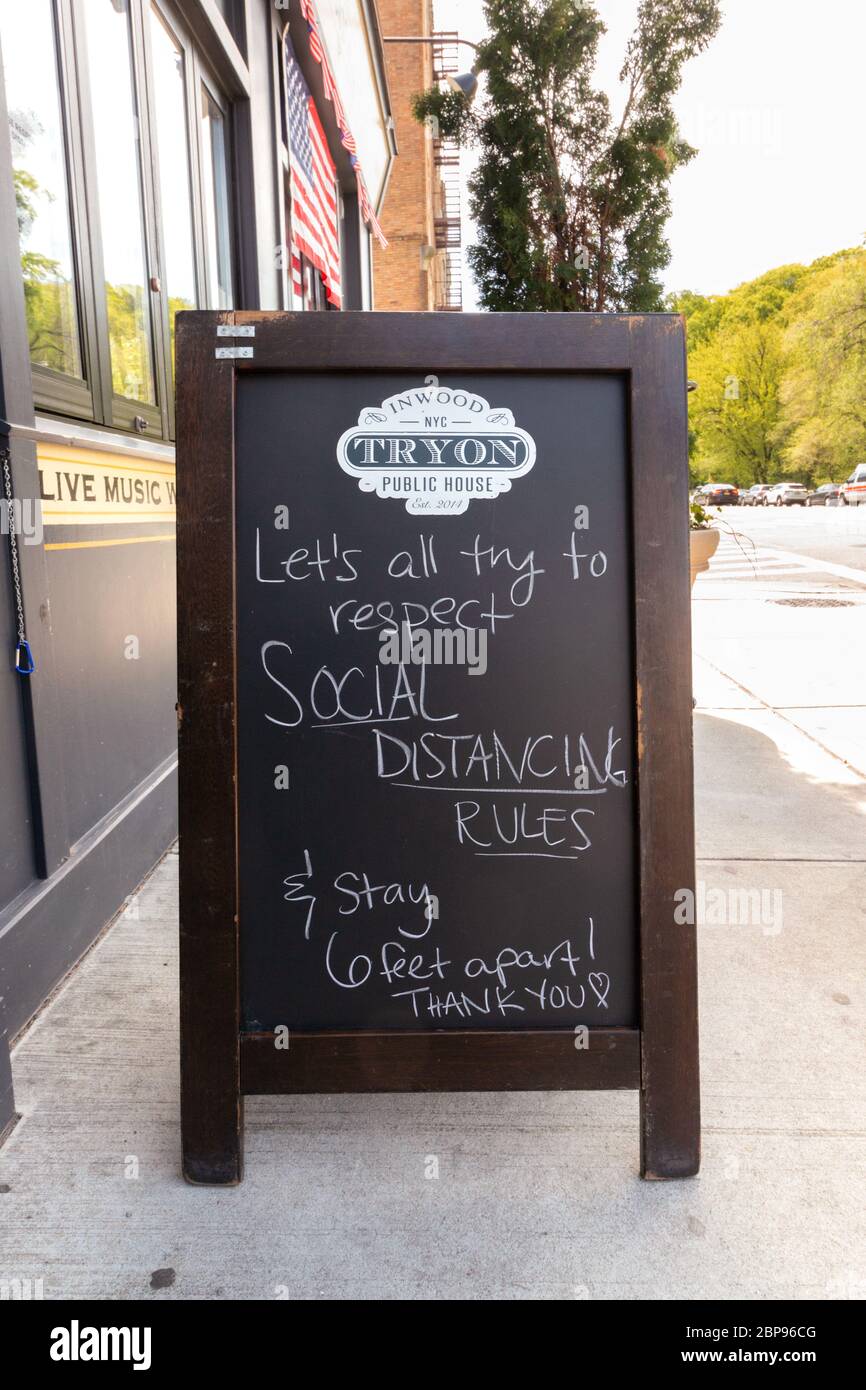 INWOOD
NYC
TRYON
PUBLIC HOUSE
Est. 2014
LIVE MUSIC W
Let's all try to
respect
SOCIAL
DISTANCING
RULES
& Stay
6 feet apart!
THANK YOU♡
alamy
alamy
Image ID: 2BP96CG
www.alamy.com